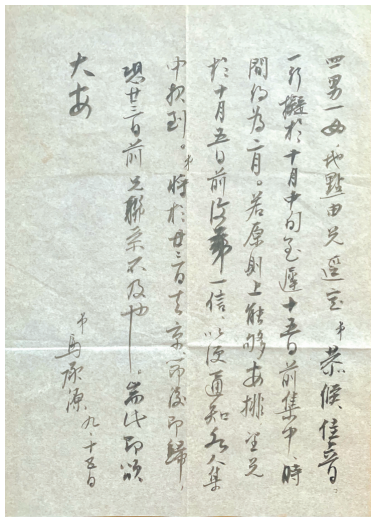 四男一女，地點由兄選定，弟恭候佳音。
一行擬於十月中旬至遲十五日前集中，時
間約為二月。若原則上能够安排，望兄
於十月五日前後弟一信，以便通知各人集
中報到。弟將於廿三日去京，即後即歸，
恐廿三日前兄聯系不及也——。耑此即頌
大安
弟馬承源 九、十五日